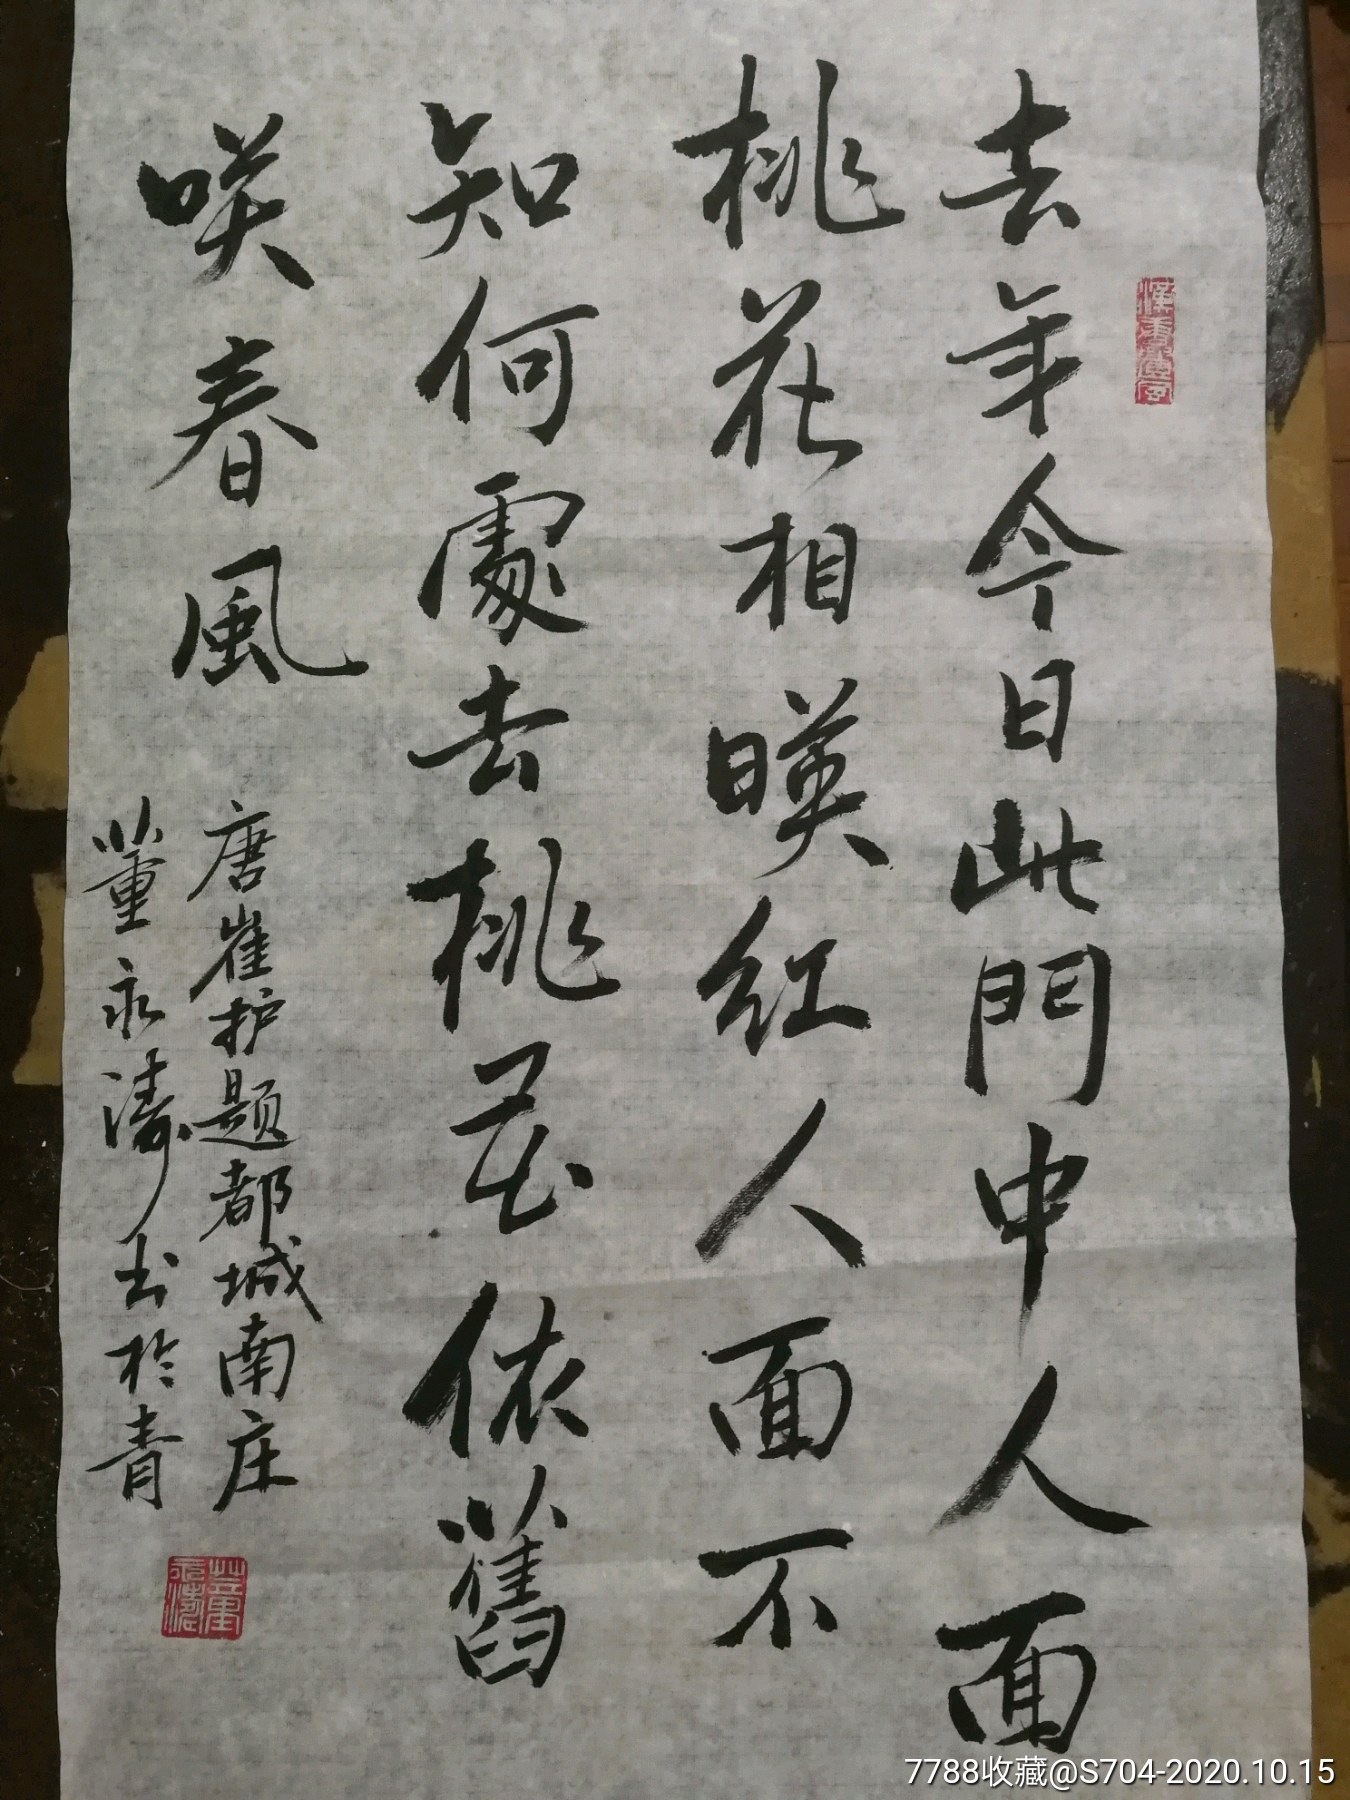 去年今日此門中人面
桃花相暎红人面不
知何處去桃花依舊
咲春風
唐崔护题都城南庄
董永濤书於青
董永濤
7788收藏@S704-2020.10.15